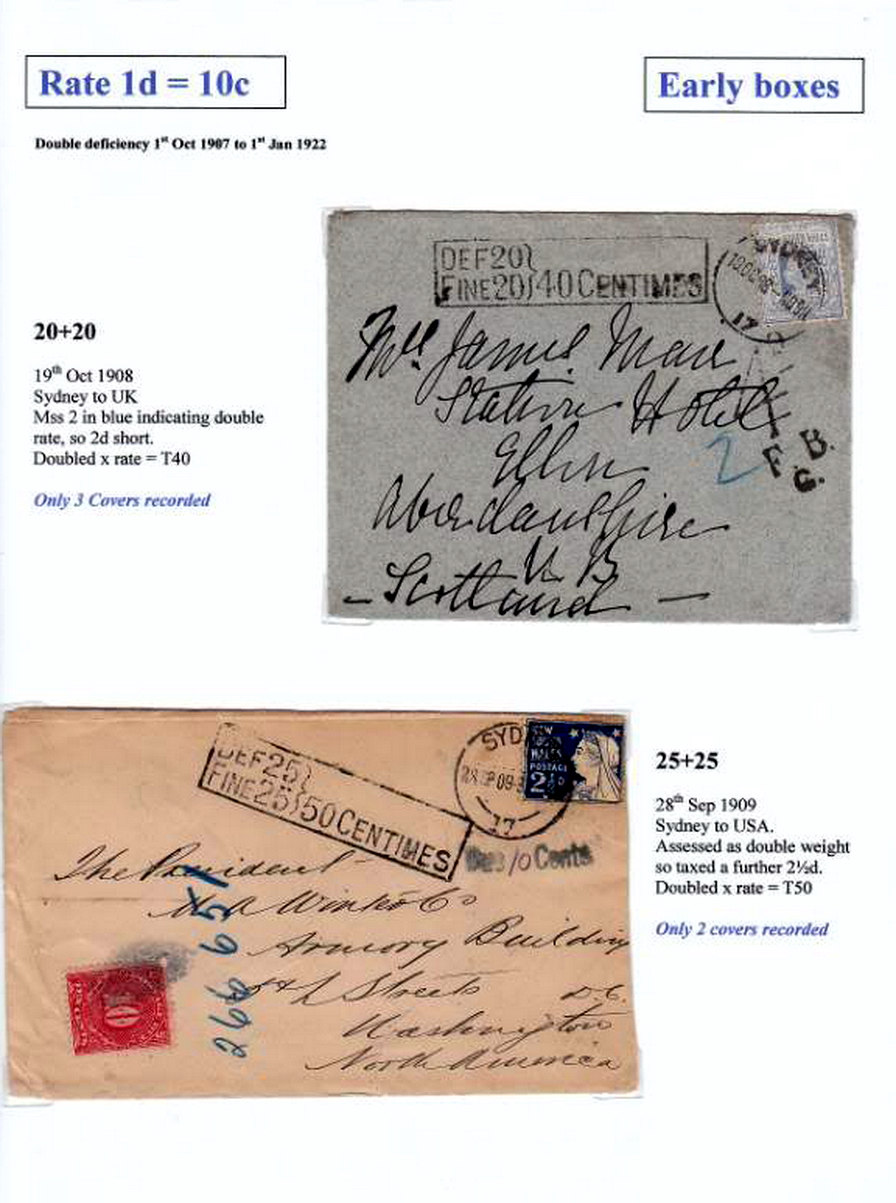 Rate 1d = 10c
Early boxes
Double deficiency 1st Oct 1907 to 1st Jan 1922
20+20
19th Oct 1908
Sydney to UK
Mss 2 in blue indicating double
rate, so 2d short.
Doubled x rate = T40
Only 3 Covers recorded
DEF 20}
FINE 20} 40 CENTIMES
SYDNEY
17
James
Station Hotel
2
Ellon
B.
F. G.
Aberdeenshire
N. B.
- Scotland -
DEF 25}
FINE 25} 50 CENTIMES
SYD
17
NEW SOUTH WALES
POSTAGE
2½D
Due 10 Cents
The President
Armory Building
Streets D.C.
Washington
North America
266 651
25+25
28th Sep 1909
Sydney to USA.
Assessed as double weight
so taxed a further 2½d.
Doubled x rate = T50
Only 2 covers recorded